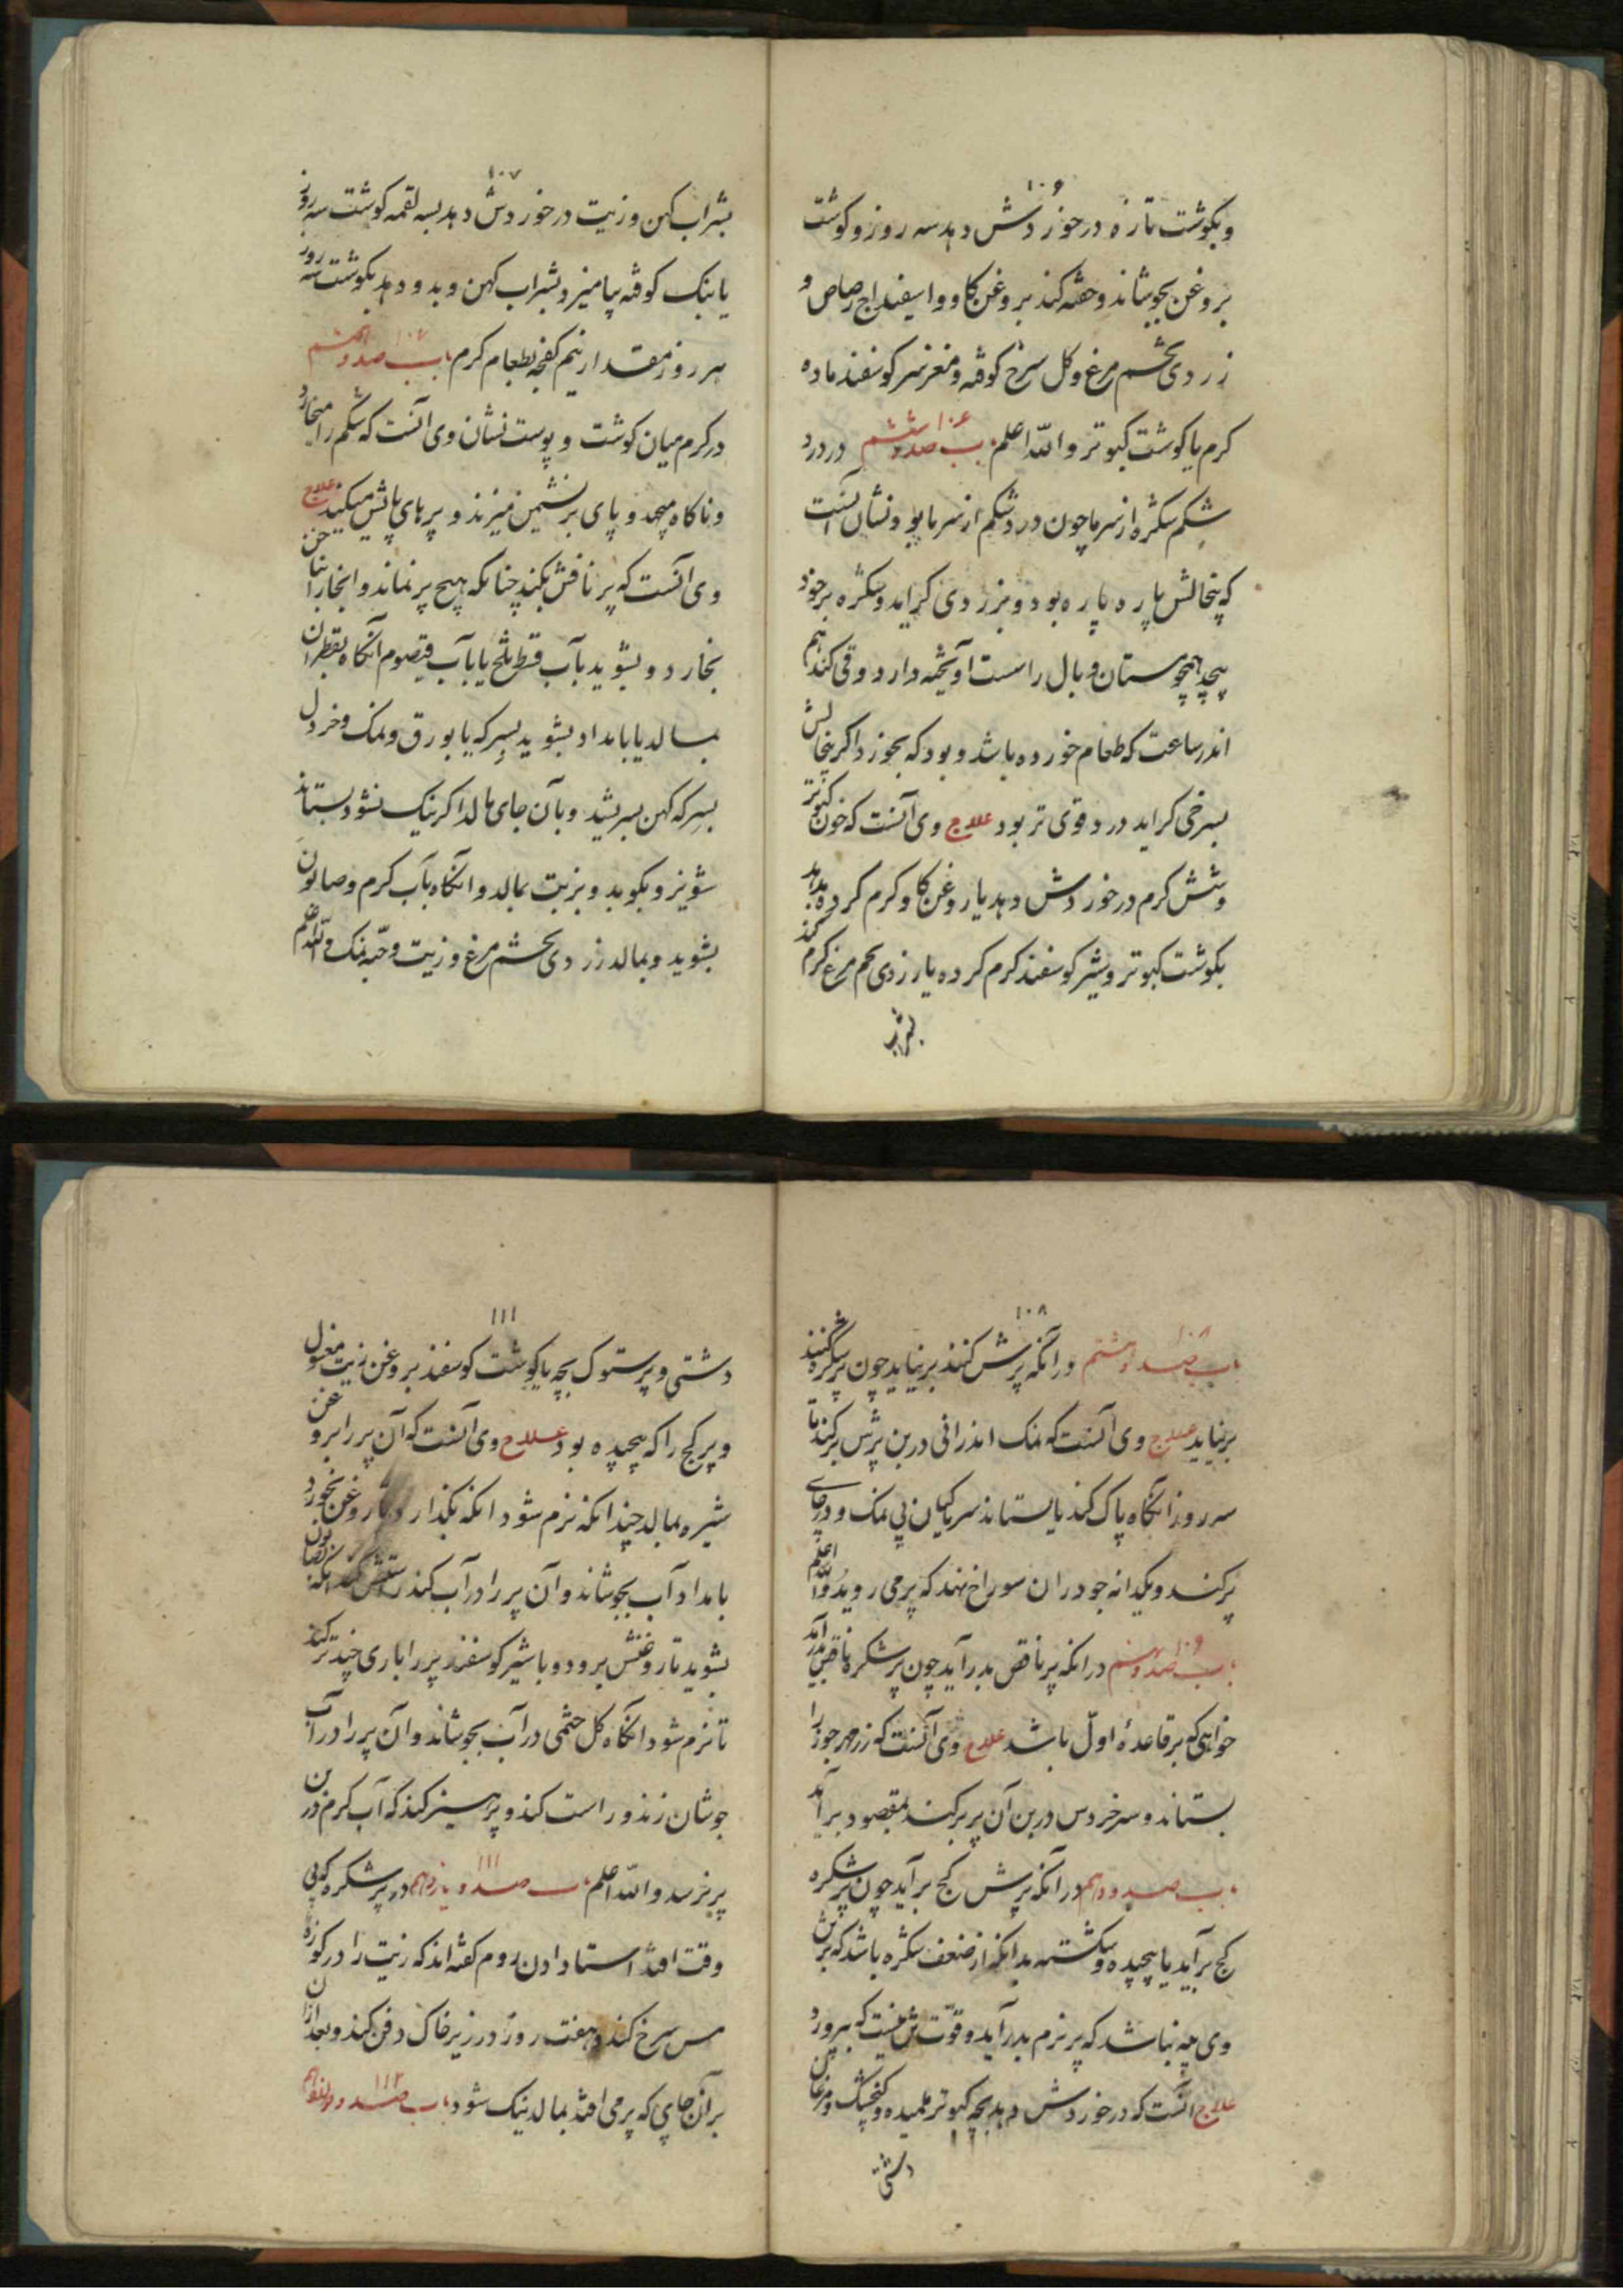 ۱۰۶
و بکوشت تازه در خوردش دهد سه روز و کوشت
بروغن بجوشاند و حقنه کند بروغن کاو و اسفیداج رصاص و
زردی تخم مرغ و کل سرخ کوفته و مغز سر کوسفند ماده
کرم یا کوشت کبوتر والله اعلم باب صد و ششم ۱۰۶ در درد
شکم شکره از سرما چون درد شکم از سرما بود نشان آنست
که پنخالش پاره پاره بود و بزردی کراید و شکره بر خود
پیچد همچو مستان و بال راست آویخته دارد و قی کند هم
اندر ساعت که طعام خورده باشد و بود که بخورد اکر پنخالش
بسرخی کراید درد قوی تر بود علاج وی آنست که خون کبوتر
و شش کرم در خوردش دهد یا روغن کاو کرم کرده بدهد
بکوشت کبوتر و شیر کوسفند کرم کرده یا زردی تخم مرغ کرم کند
۱۰۷
بشراب کهن و زیت در خوردش دهد بسه لقمه کوشت سه روز
یا بنک کوفته بیامیزد بشراب کهن و بدو دهد بکوشت سه روز
هر روز مقدار نیم کفجه بطعام کرم باب صد و هفتم ۱۰۷
در کرم میان کوشت و پوست نشان وی آنست که شکم را میخارد
و ناکاه میجهد و پای بر نشیمن میزند و پرهای پایش میکند علاج
وی آنست که پر نافش بکند چنانکه هیچ پر نماند و انجا را بناخن
بخارد و بشوید بآب قسط تلخ یا بآب قیصوم آنکاه بقطران
بمالد یا بامداد بشوید بسرکه یا بورق و نمک و خردل
بسرکه کهن بسریشد و بآن جای مالد اکر نیک نشود بستاند
شونیز و بکوبد و بزیت بمالد و انکاه بآب کرم و صابون
بشوید و بمالد زردی تخم مرغ و زیت و حبه نمک والله اعلم
۱۰۸
باب صد و هشتم ۱۰۸ در آنکه پرش کنند بر نیاید چون پر شکره کنند
بر نیاید علاج وی آنست که نمک اندرانی در بن پرش برکند تا
سه روز انکاه پاک کند یا بستاند سر ماکیان بی نمک و در جای
پر کند و یکدانه جو در ان سوراخ نهند که پر می روید والله اعلم
باب صد و نهم ۱۰۹ در انکه پر ناقص بدر آید چون پر شکره ناقص بدر آمد
خواهی که بر قاعدهٔ اول باشد علاج وی آنست که زهر جوز را
بستاند و سر خروس در بن آن پر برکند بمقصود بر آمد
باب صد و دهم در آنکه پرش کج بر آید چون پر شکره
کج بر آید یا پیچیده و شکسته بدانکه از ضعف شکره باشد که پرش
وی به نباشد که پر نرم بدر آید و قوتش نیست که بپرورد
علاج آنست که در خوردش دهد بچه کبوتر و کنجشک و مرغان
دشتی
۱۱۱
دشتی و پرستوک بچه یا کوشت کوسفند بروغن زیت مغسول
و پر کج را که پیچیده بود علاج وی آنست که آن پر را بروغن
شیره بمالد چندانکه نرم شود انکه بکذارد تا روغن بخورد
بامداد آب بجوشاند و آن پر را در آب کند انکه بصابون
بشوید تا روغنش برود و با شیر کوسفند پر را باری چند تر کند
تا نرم شود انکاه کل ختمی در آب بجوشاند و آن پر را در آب
جوشان زند و راست کند و پرهیز کند که آب کرم در بن
پر نرسد والله اعلم باب صد و یازدهم ۱۱۱ در پر شکره که بی
وقت افتد استادان روم کفته اند که زیت را در کوزه
مس سرخ کند و هفت روز در زیر خاک دفن کند و بعد از ان
بر آن جای که پر می افتد بمالد نیک شود باب صد و دوازدهم ۱۱۲